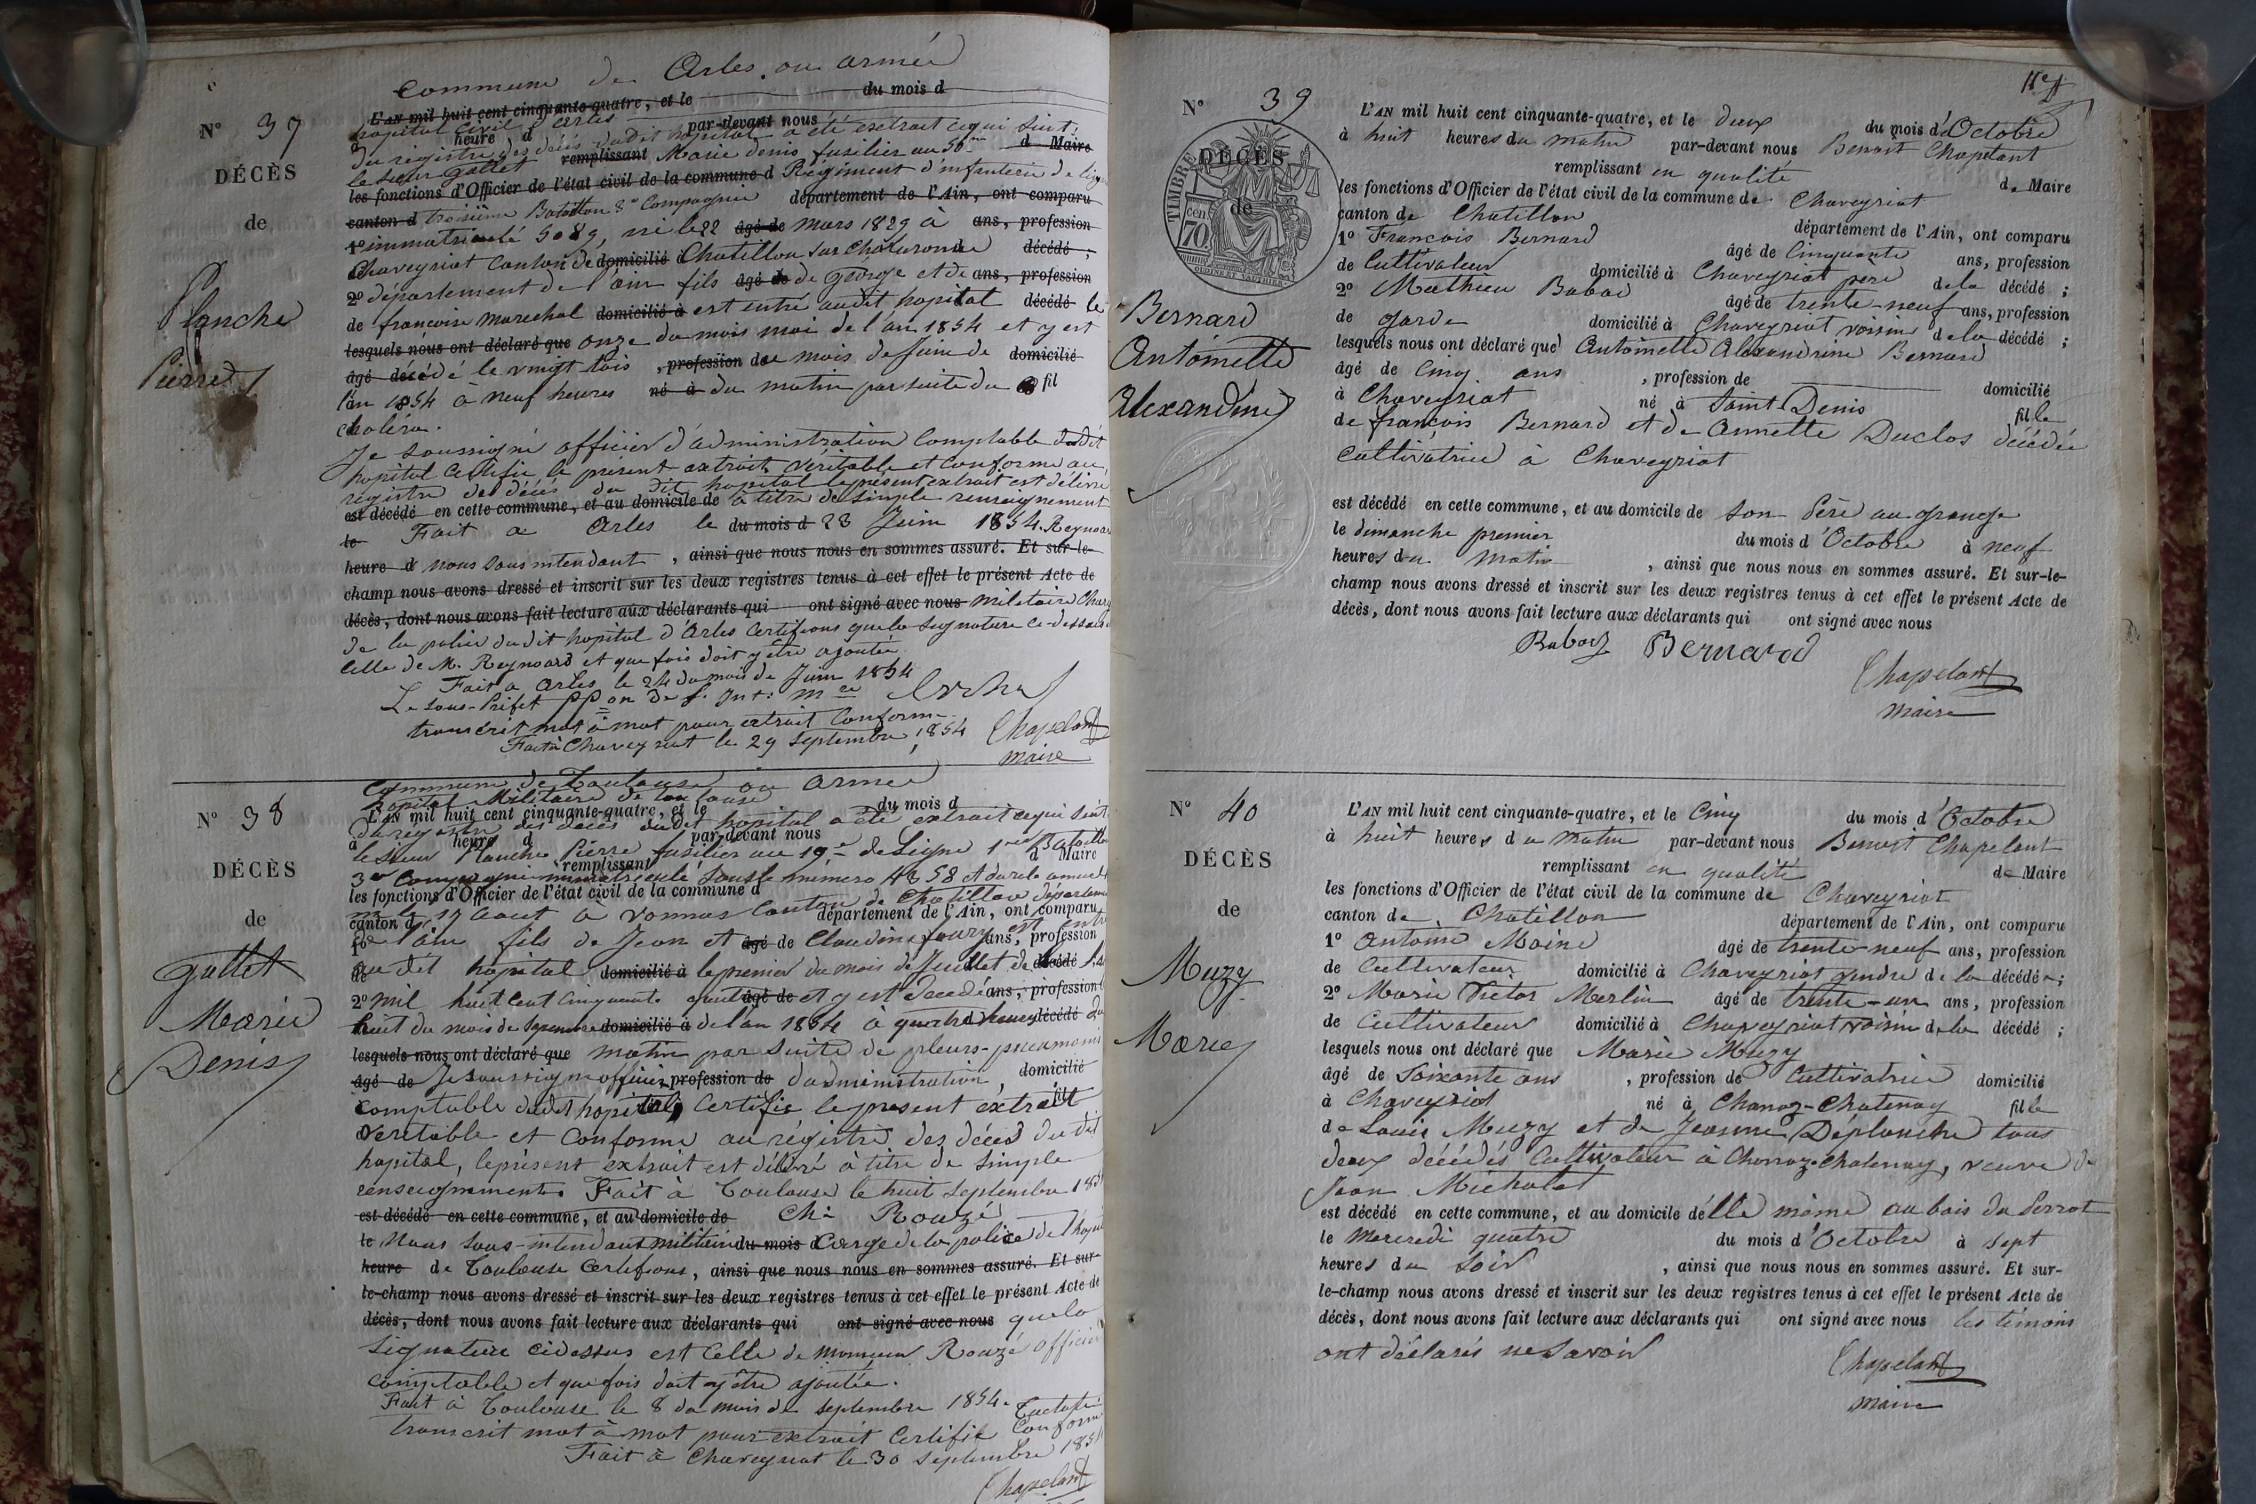 Commune de Arles ou armée
L'AN mil huit cent cinquante-quatre, et le du mois d
N° 37
hopital civil d'Arles
heure d par-devant nous
du registre des décès dudit hopital a été extrait ce qui suit:
remplissant d Maire
le sieur Gallet Marie denis fusilier au 50me
DÉCÈS
les fonctions d'Officier de l'état civil de la commune d Régiment d'infanterie de ligne
canton d troisième Bataillon 8e Compagnie département de l'Ain, ont comparu
de
1° immatriculé 5089, né le 22 âgé de mars 1829 à ans, profession
Chaveyriat Canton de domicilié Chatillon sur Chalaronne décédé ;
2° département de l'ain fils âgé de de george et de ans, profession
de francoise marechal domicilié à est entré audit hopital décédé le
Planche
lesquels nous ont déclaré que onze du mois mai de l'an 1854 et y est
âgé décédé le vingt trois , profession de mois de Juin de domicilié
Pierre
l'an 1854 à neuf heures né à du matin par suite du fil
choléra.
Je soussigné officier d'administration Comptable dudit
hopital certifie le présent extrait véritable et conforme au
régistre des décès du dit hopital le présent extrait est délivré
est décédé en cette commune, et au domicile de à titre de simple renseignement
le Fait a Arles le du mois d 23 Juin 1854. Reynoard
heure d nous sous intendant , ainsi que nous nous en sommes assuré. Et sur-le-
champ nous avons dressé et inscrit sur les deux registres tenus à cet effet le présent Acte de
décès, dont nous avons fait lecture aux déclarants qui ont signé avec nous militaire Charg
de la police du dit hopital d'Arles certifions que la signature ci-dessus
celle de M. Reynoard et que fois doit y être ajoutée
Fait a Arles le 24 du mois de Juin 1854
Le sous-Préfet
transcrit mot à mot pour extrait Conforme
Fait à Chaveyriat le 29 Septembre 1854 Chapelant
maire
Commune de Toulouse ou armée
hopital Militaire de toulouse
L'AN mil huit cent cinquante-quatre, et le du mois d
N° 38
du registre des décès dudit hopital a été extrait ce qui suit
à heure d par-devant nous
le sieur Planche Pierre fusilier au 19e de Ligne 1er Bataillon
remplissant d Maire
DÉCÈS
3e Compagnie immatriculé sous le numéro
les fonctions d'Officier de l'état civil de la commune d
né le 17 aout à vonnas Canton de Chatillon départeme
canton d département de l'Ain, ont comparu
de
1° de l'ain fils de Jean et âgé de Claudine ans, profession
de au dit hopital domicilié à le premier du mois de Juillet de décédé
Gallet
2° mil huit cent cinquante quatre âgé de et y est décédé ans, profession
Marie
huit du mois de Septembre domicilié à de l'an 1854 à quatre heures décédé du
lesquels nous ont déclaré que matin par suite de pleuro-pneumonie
Denis
âgé de Je soussigné officier profession de d'administration , domicilié
comptable dudit hopital, Certifie le présent extrait fil
véritable et Conforme au régistre des décès du dit
hopital, le présent extrait est délivré à titre de simple
renseignements Fait à Toulouse le huit Septembre 185
est décédé en cette commune, et au domicile de Ch: Rouzé
le Nous sous-intendant militaire du mois d Carge de la police de l'hopi
heure de Toulouse Certifions, ainsi que nous nous en sommes assuré. Et sur-
le-champ nous avons dressé et inscrit sur les deux registres tenus à cet effet le présent Acte de
décès, dont nous avons fait lecture aux déclarants qui ont signé avec nous que la
Signature cidessus est Celle de Monsieur Rouzé officier
comptable et que fois doit y être ajoutée.
Fait à Toulouse le 8 du mois de Septembre 1854.
transcrit mot à mot pour extrait Certifié Conforme
Fait à Chaveyriat le 30 Septembre 185
Chapelant
N° 39
L'AN mil huit cent cinquante-quatre, et le deux du mois d'Octobre
à huit heures du matin par-devant nous Benoit Chapelant
DÉCÈS
remplissant en qualité de Maire
les fonctions d'Officier de l'état civil de la commune de Chaveyriat
TIMBRE
de
cen 70
canton de Chatillon département de l'Ain, ont comparu
1° François Bernard âgé de Cinquante ans, profession
de Cultivateur domicilié à Chaveyriat père de la décédé ;
2° Mathieu Babad âgé de trente-neuf ans, profession
Bernard
de garde domicilié à Chaveyriat voisin de la décédé ;
lesquels nous ont déclaré que Antoinette Alexandrine Bernard
Antoinette
âgé de Cinq ans , profession de domicilié
Alexandrine
à Chaveyriat né à Saint-Denis fille
de françois Bernard et de Annette Duclos décédée
cultivatrice à Chaveyriat
est décédé en cette commune, et au domicile de son Père au grange
le dimanche premier du mois d'Octobre à neuf
heures du Matin , ainsi que nous nous en sommes assuré. Et sur-le-
champ nous avons dressé et inscrit sur les deux registres tenus à cet effet le présent Acte de
décès, dont nous avons fait lecture aux déclarants qui ont signé avec nous
Babad Bernard
Chapelant
Maire
N° 40
L'AN mil huit cent cinquante-quatre, et le Cinq du mois d'Octobre
à huit heures du matin par-devant nous Benoit Chapelant
DÉCÈS
remplissant en qualité de Maire
les fonctions d'Officier de l'état civil de la commune de Chaveyriat
de
canton de Chatillon département de l'Ain, ont comparu
1° Antoine Moine âgé de trente-neuf ans, profession
Muzy
de Cultivateur domicilié à Chaveyriat gendre de la décédée ;
2° Marie Victor Merlin âgé de trente-un ans, profession
Marie
de Cultivateur domicilié à Chaveyriat voisin de la décédé ;
lesquels nous ont déclaré que Marie Muzy
âgé de Soixante ans , profession de Cultivatrice domicilié
à Chaveyriat né à Chanoz-Chatenay fille
de Louis Muzy et de Jeanne Déplanche tous
deux décédés Cultivateur à Chanoz-Chatenay, veuve de
Jean Michalet
est décédé en cette commune, et au domicile d'elle même au bois du Perrat
le Mercredi quatre du mois d'Octobre à sept
heures du soir , ainsi que nous nous en sommes assuré. Et sur-
le-champ nous avons dressé et inscrit sur les deux registres tenus à cet effet le présent Acte de
décès, dont nous avons fait lecture aux déclarants qui ont signé avec nous les témoins
ont déclarés ne savoir
Chapelant
Maire